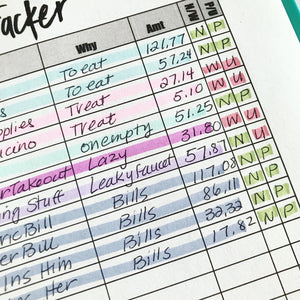 racker
Why Amt N/W P/U
To eat 121.77 N P
s To eat 57.24 N P
pplies Treat 27.14 W U
ucino Treat 5.10 W U
on empty 51.25 N P
rTakeout Lazy 31.80 W U
ng Stuff Leaky Faucet 57.81 N P
ric Bill Bills 117.08 N P
er Bill Bills 86.11 N P
Ins Him Bills 32.33 N P
Ins Her Bills 17.82 N P